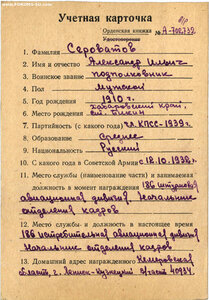 Учетная карточка
б/р
Орденская книжка № А-702732
Удостоверение
1. Фамилия Сероватов
2. Имя и отчество Александр Ильич
3. Воинское звание подполковник
4. Пол Мужской
5. Год рождения 1910 г.
Хабаровский край,
ст. Бикин
7. Партийность (с какого года) чл. КПСС-1939 г.
8. Образование Среднее
9. Национальность Русский
10. С какого года в Советской Армии с 18.10.1932 г.
11. Место службы (наименование части) и занимаемая
должность в момент награждения 186 штурмовая
авиационная дивизия, Начальник
отделения кадров
12. Место службы и должность в настоящее время
186 истребительная авиационная дивизия
Начальник отделения кадров.
13. Домашний адрес награжденного Кемеровская
область, г. Ленинск-Кузнецкий в/части 40934.